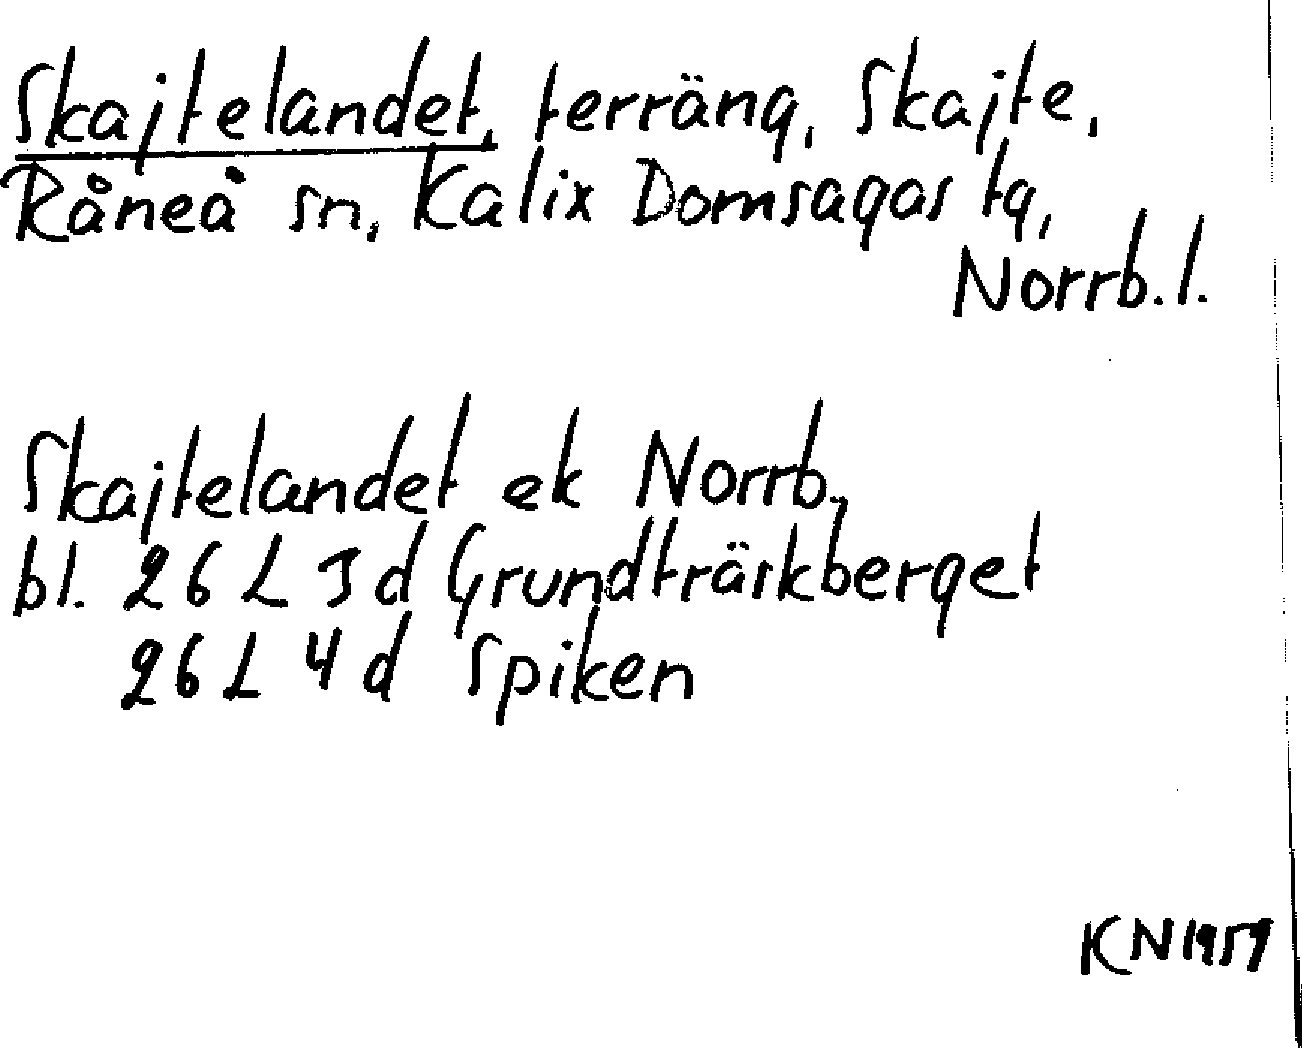 Skajtelandet, terräng, Skajte,
Råneå sn, Kalix Domsagas tg,
Norrb. l.
Skajtelandet ek Norrb.,
bl. 26 L 3 d Grundträskberget
26 L 4 d Spiken
KN 1959